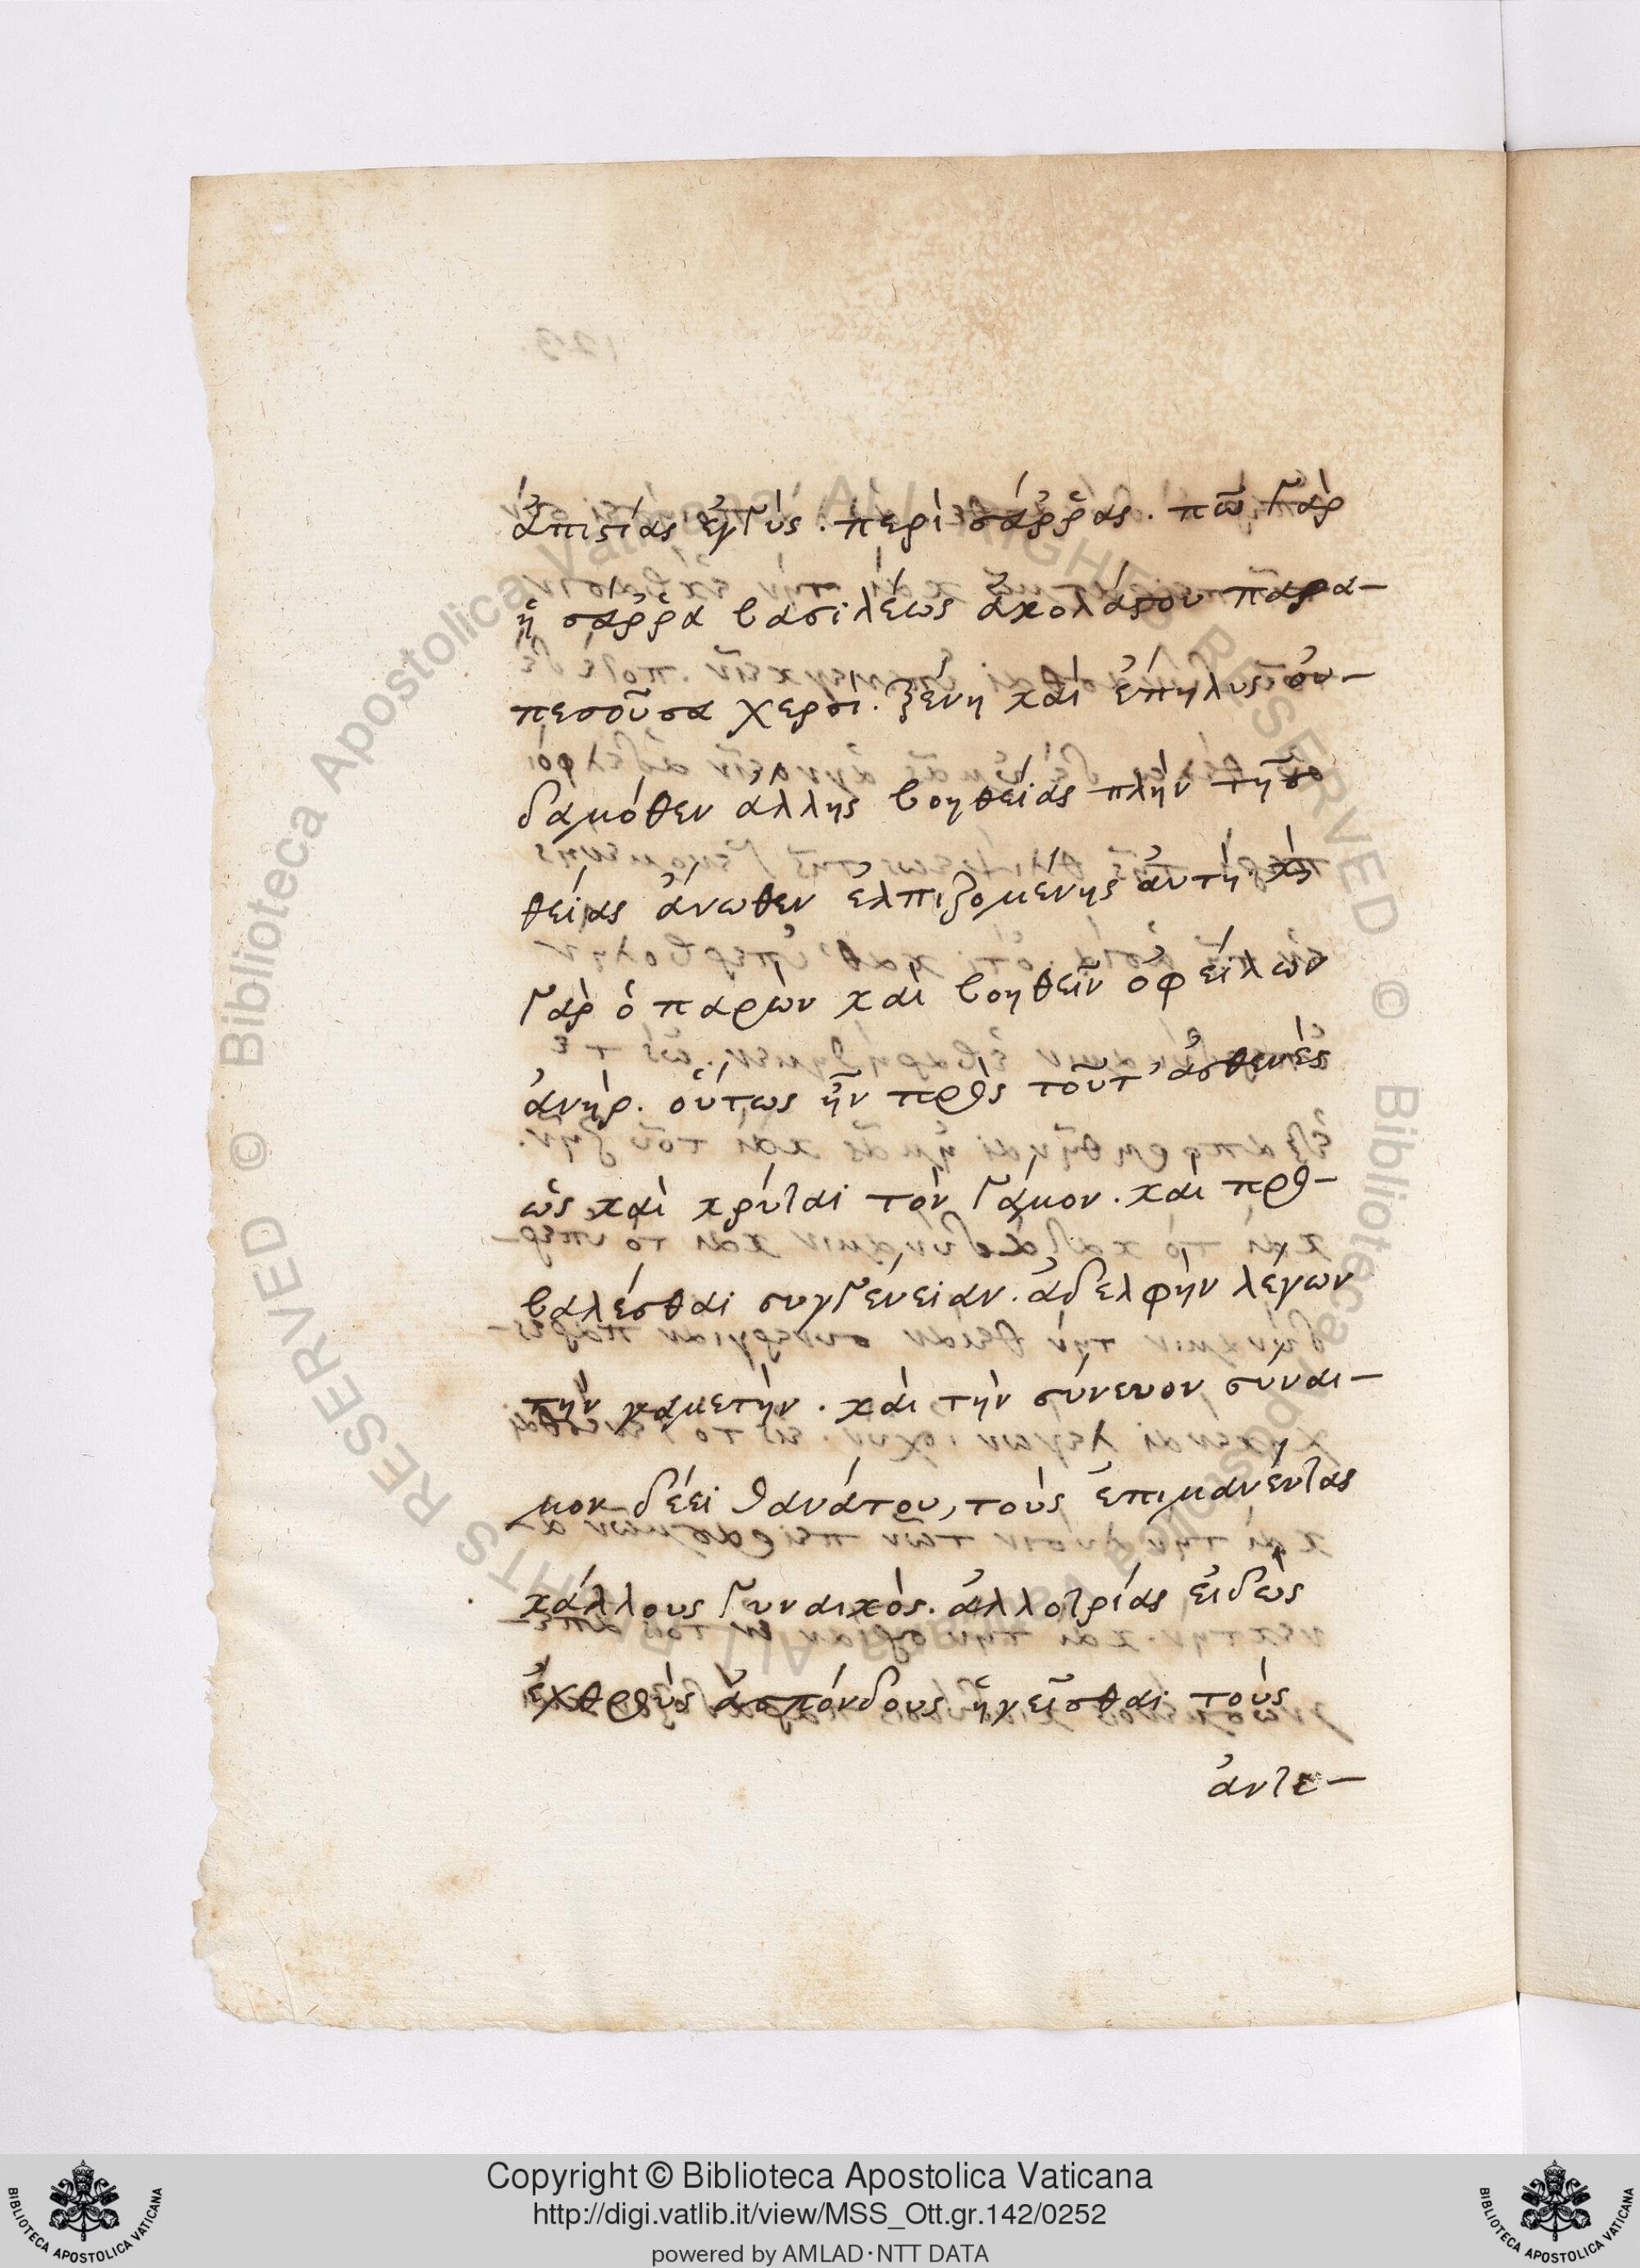 ἀπιστίας ἐγγύς. περὶ σάρρας. πῶ γὰρ
ἡ σάρρα βασιλέως ἀκολάστου παρα-
πεσοῦσα χερσὶ. ξένη καὶ ἔπηλυς οὐ-
δαμόθεν ἄλλης βοηθείας πλὴν τῆσ
θείας ἄνωθεν ἐλπιζομένης αὐτῇ
γὰρ ὁ παρὼν καὶ βοηθεῖν ὀφείλων
ἀνὴρ. οὕτως ἦν πρὸς τοῦτ' ἀσθενὲς
ὡς καὶ κρύψαι τὸν γάμον. καὶ προ-
βαλέσθαι συγγένειαν. ἀδελφὴν λέγων
τὴν γαμετὴν. καὶ τὴν σύνευνον συναι-
μον δέει θανάτου, τοὺς ἐπιμανέντας
κάλλους γυναικὸς. ἀλλοτρίας εἰδὼς
ἐχθροὺς ἀσπόνδους ἡγεῖσθαι τοὺς
ἀντε-
Copyright © Biblioteca Apostolica Vaticana
http://digi.vatlib.it/view/MSS_Ott.gr.142/0252
powered by AMLAD·NTT DATA
BIBLIOTECA APOSTOLICA VATICANA
BIBLIOTECA APOSTOLICA VATICANA